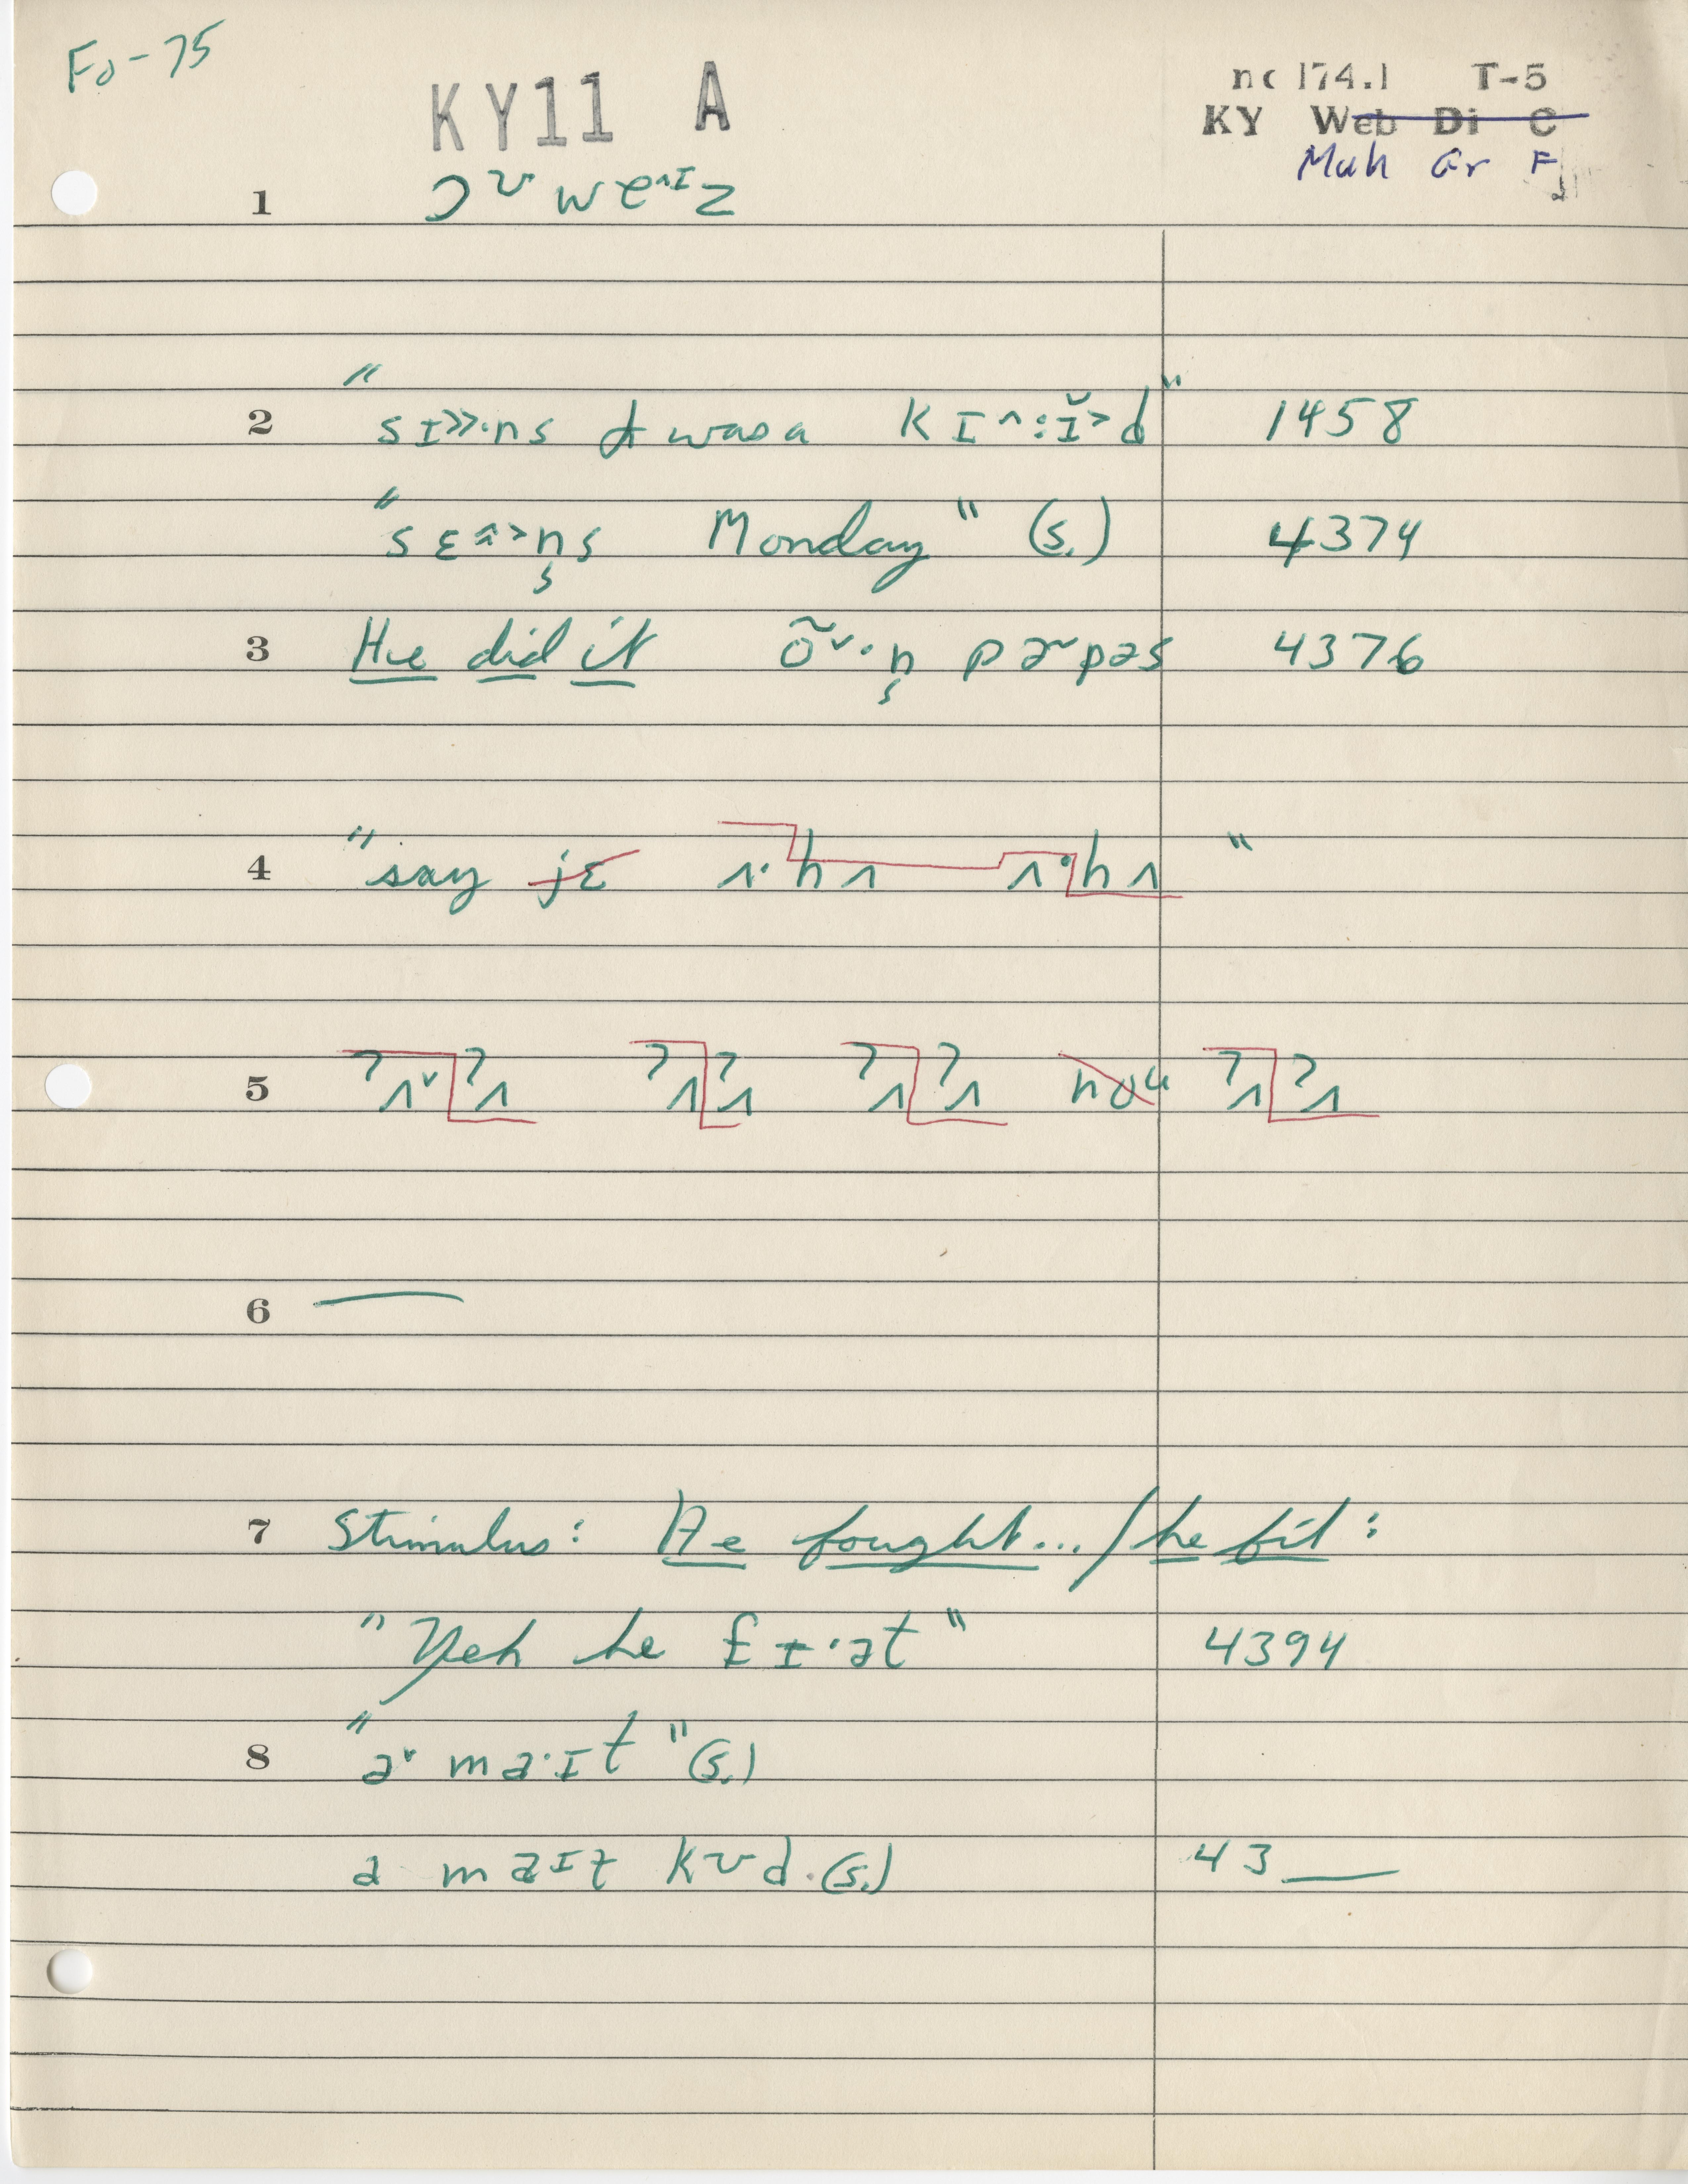 Fo-75
KY11 A
nc 174.1 T-5
KY Web Di C
Muh Gr F
1 ɔ weɪz
2 "sɪ˃˃·ns I was a kɪ^:ɪ̆˃d" 1458
"sɛ^˃n̩s Monday" (s.) 4374
3 He did it õ˅·n̩ pɚpəs 4376
4 "say jɛ ʌ·hʌ ʌ·hʌ"
5 ʔʌ˅ʔʌ ʔʌʔʌ ʔʌʔʌ nou ʔʌʔʌ
6 —
7 Stimulus: He fought.../he fit:
"Yeh he fɪ·ət" 4394
8 "a˅ ma·ɪt" (s.)
a maɪt kʊd. (s.) 43__